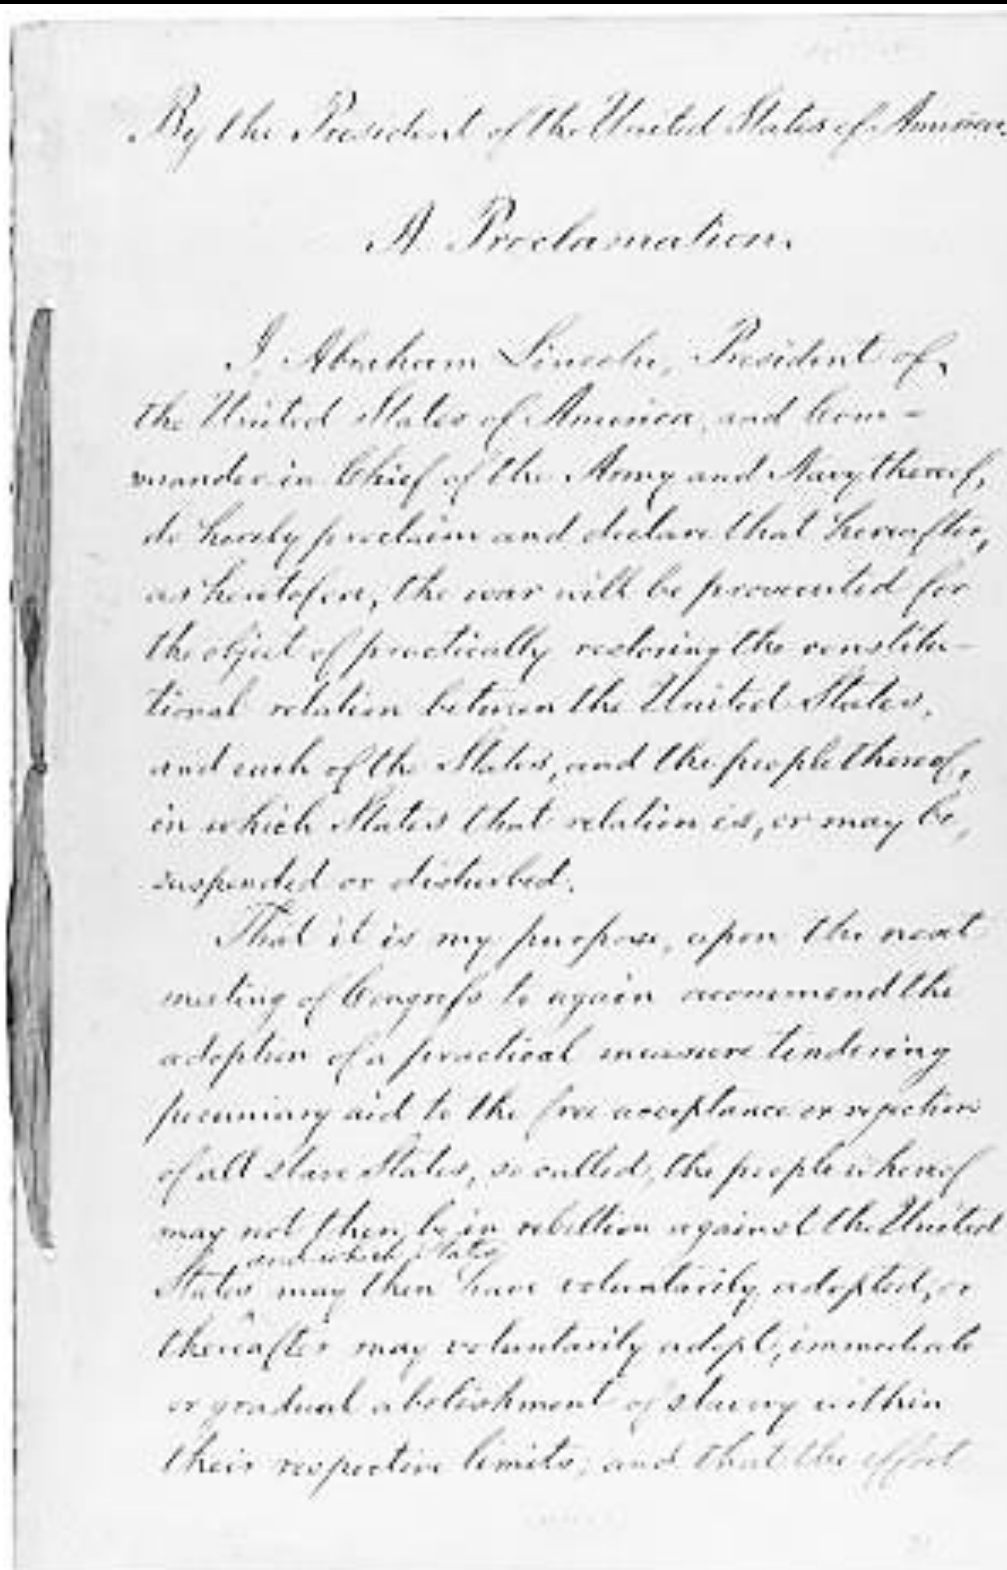 By the President of the United States of America.
A Proclamation.
I, Abraham Lincoln, President of
the United States of America, and Com-
mander in Chief of the Army and Navy thereof,
do hereby proclaim and declare that hereafter,
as heretofore, the war will be prosecuted for
the object of practically restoring the constitu-
tional relation between the United States,
and each of the States, and the people thereof,
in which States that relation is, or may be,
suspended or disturbed.
That it is my purpose, upon the next
meeting of Congress to again recommend the
adoption of a practical measure tendering
pecuniary aid to the free acceptance or rejection
of all slave States, so called, the people whereof
may not then be in rebellion against the United
and which States
States may then have voluntarily adopted, or
thereafter may voluntarily adopt, immediate
or gradual abolishment of slavery within
their respective limits; and that the effort